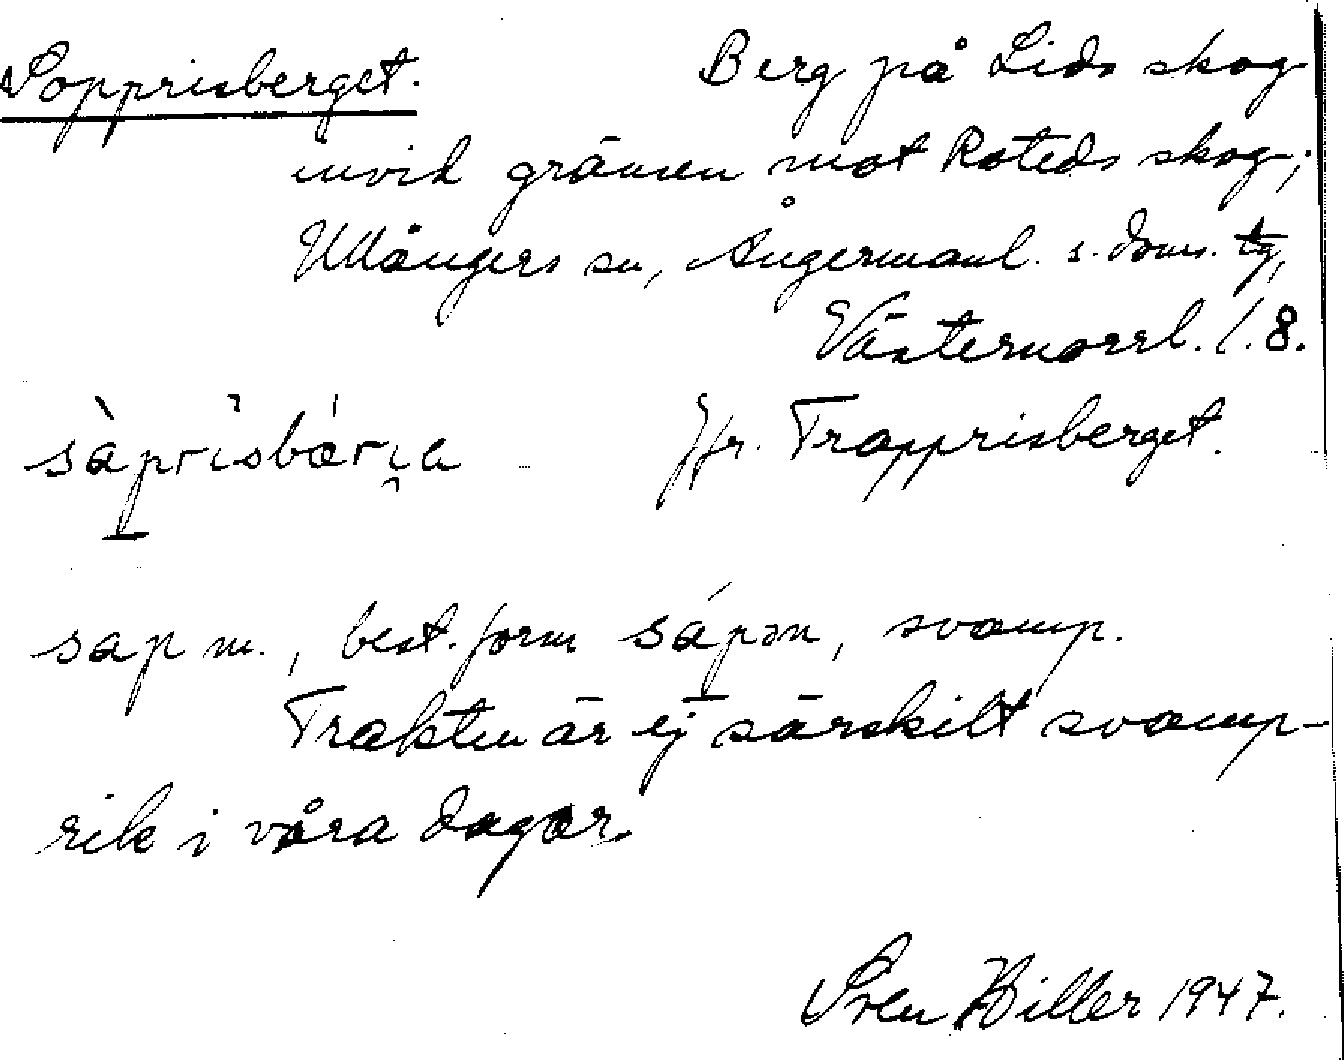 Sopprisberget. Berg på Lids skog
invid gränsen mot Roteds skog;
Ullångers sn, Ångermanl. s. doms. tg,
Västernorrl. l. 8.
sàprisbǽrıa Jfr. Trapprisberget.
sap m., best. form sápən, svamp.
Trakten är ej särskilt svamp-
rik i våra dagar.
Sven Hiller 1947.